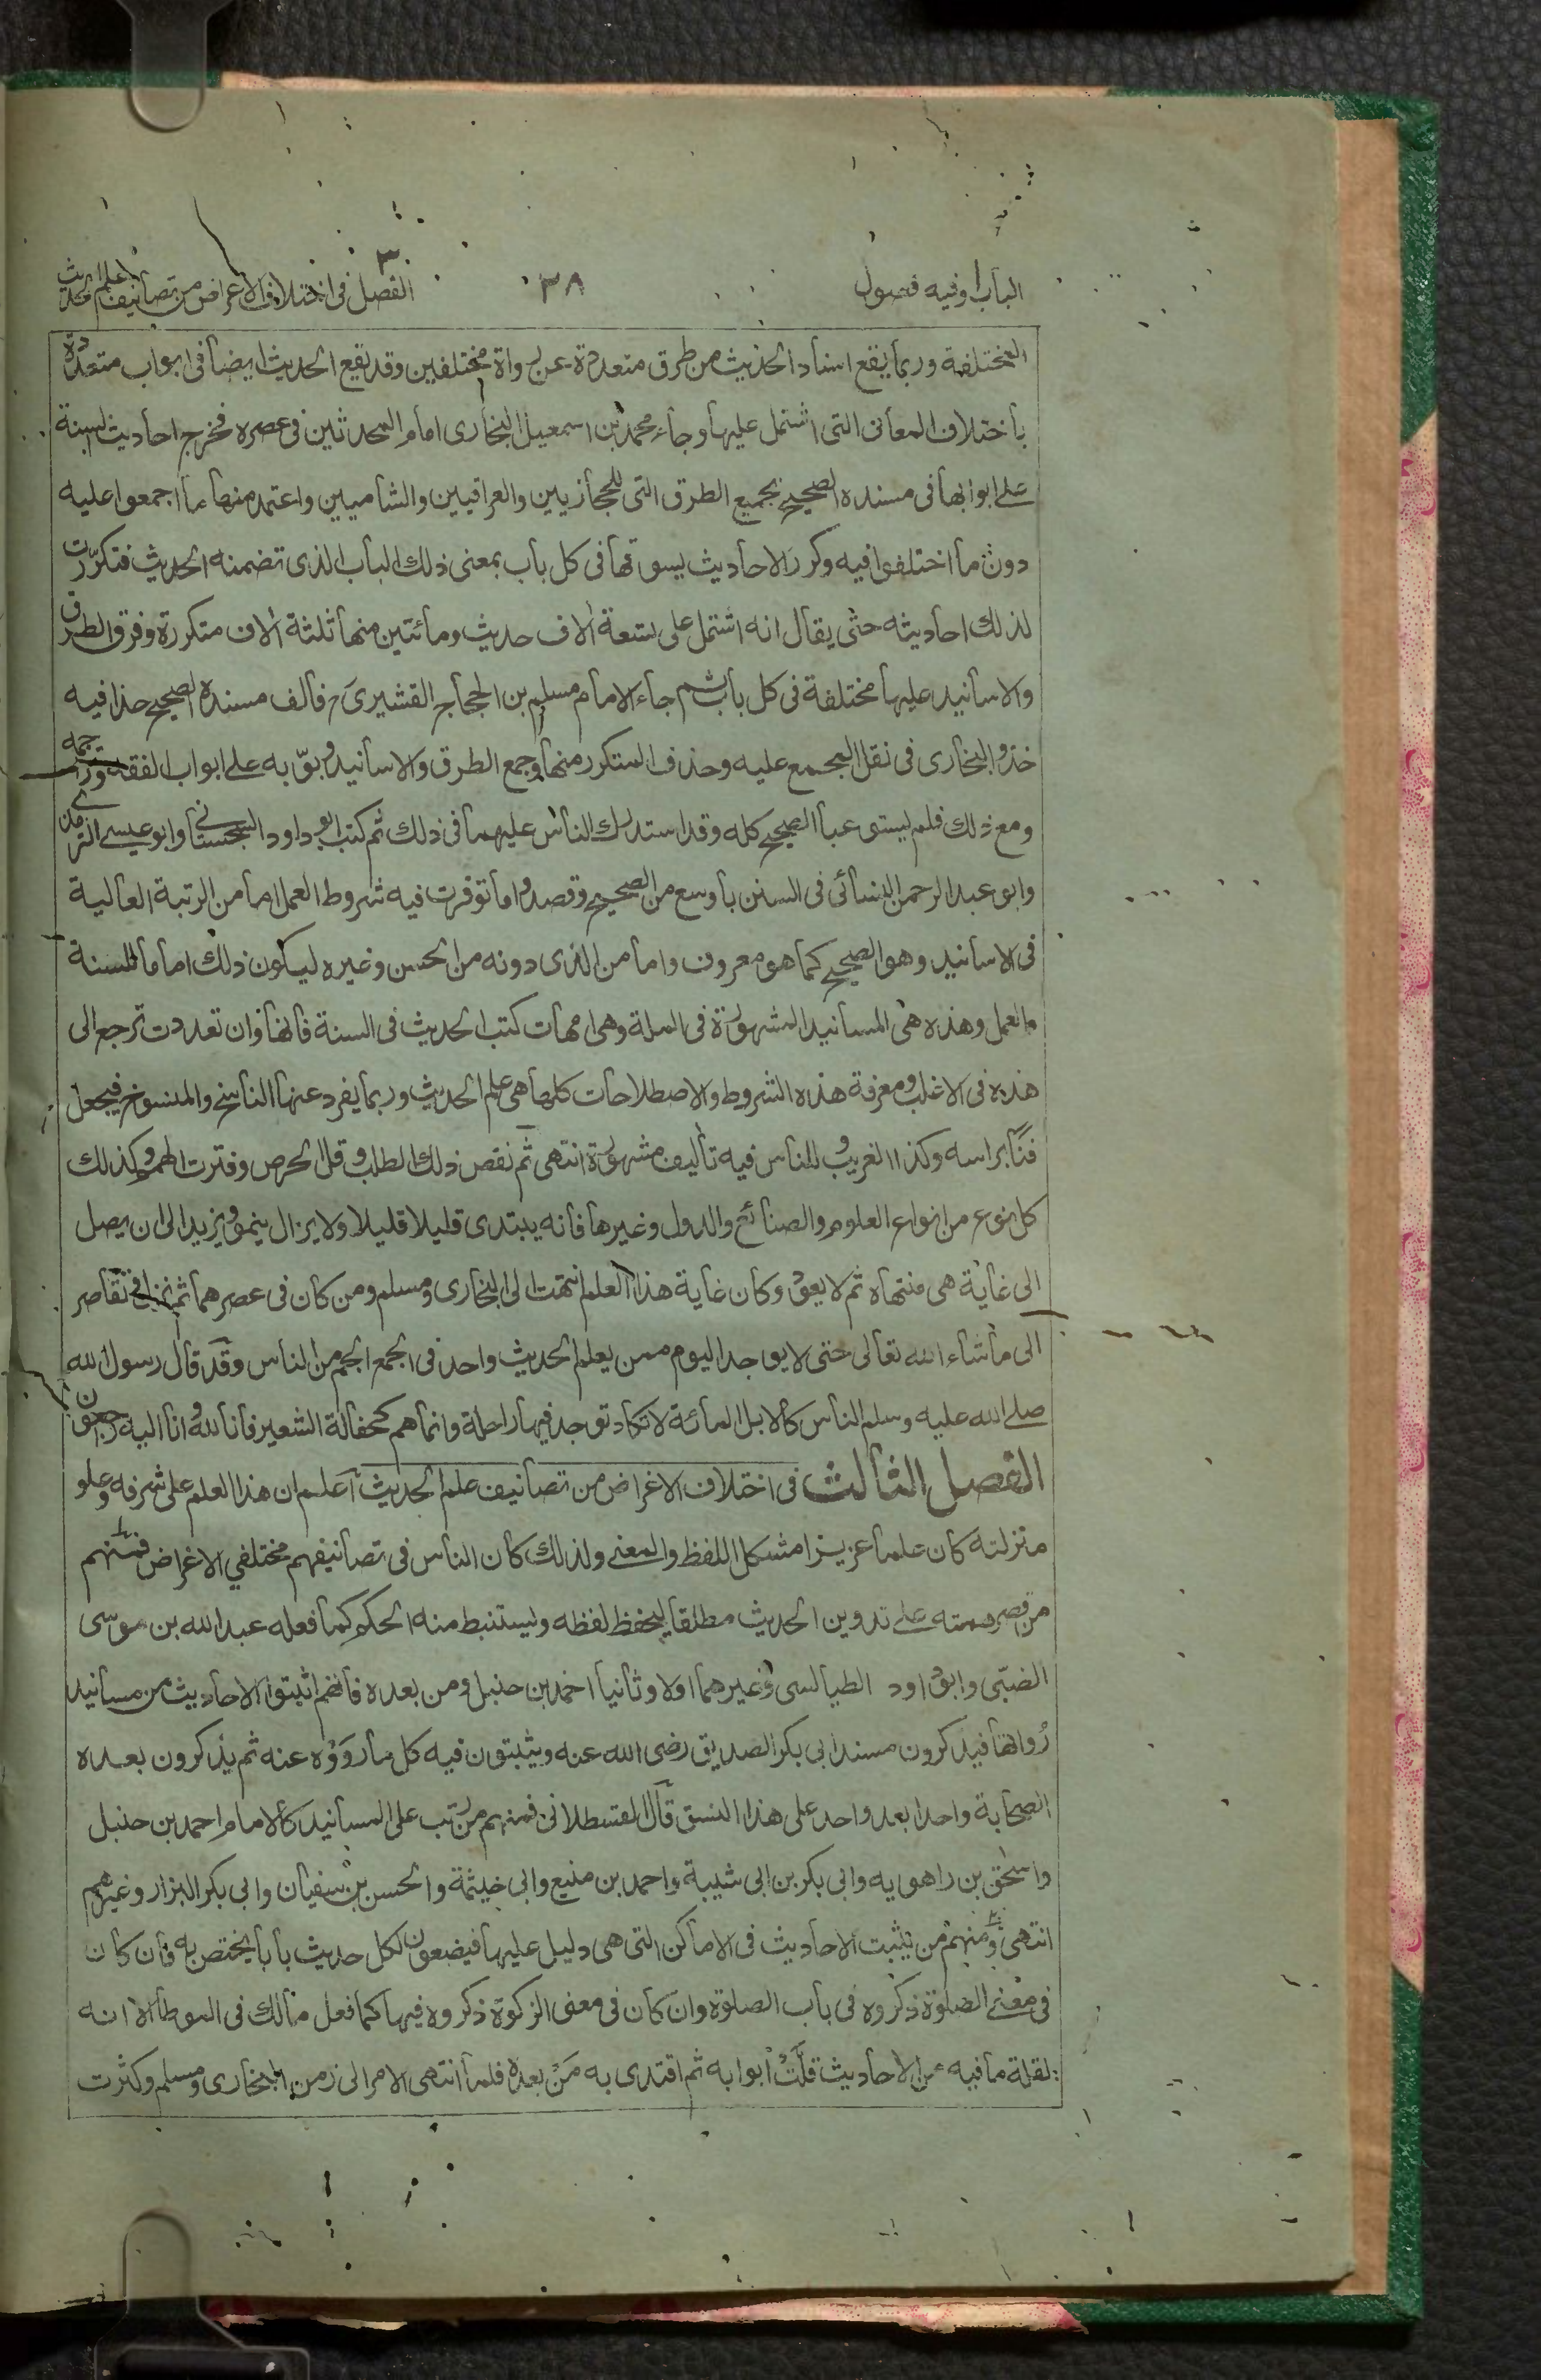 الباب ١ وفيه فصول
٣٨
الفصل ٣ في اختلاف الاغراض من تصانيف علم الحديث
المختلفة وربما يقع اسناد الحديث من طرق متعددة عن رواة مختلفين وقد يقع الحديث ايضا في ابواب متعددة
باختلاف المعاني التي اشتمل عليها وجاء محمد بن اسمعيل البخاري امام المحدثين في عصره فخرج احاديث السنة
على ابوابها في مسنده الصحيح بجميع الطرق التي للحجازيين والعراقيين والشاميين واعتمد منها ما اجمعوا عليه
دون ما اختلفوا فيه وكرر الاحاديث يسوقها في كل باب بمعنى ذلك الباب الذي تضمنه الحديث فتكررت
لذلك احاديثه حتى يقال انه اشتمل على تسعة الاف حديث ومائتين منها ثلثة الاف متكررة وفرق الطرق
والاسانيد عليها مختلفة في كل باب ثم جاء الامام مسلم بن الحجاج القشيري فالف مسنده الصحيح حذا فيه
حذو البخاري في نقل المجمع عليه وحذف المتكرر منها وجمع الطرق والاسانيد وبوّبه على ابواب الفقه وتراجمه
ومع ذلك فلم يستوعبا الصحيح كله وقد استدرك الناس عليهما في ذلك ثم كتب ابو داود السجستاني وابو عيسى الترمذي
وابو عبد الرحمن النسائي في السنن باوسع من الصحيح وقصدوا ما توفرت فيه شروط العمل اما من الرتبة العالية
في الاسانيد وهو الصحيح كما هو معروف واما من الذي دونه من الحسن وغيره ليكون ذلك اماما للسنة
والعمل وهذه هي المسانيد المشهورة في الملة وهي امهات كتب الحديث في السنة فانها وان تعددت ترجع الى
هذه في الاغلب ومعرفة هذه الشروط والاصطلاحات كلها هي علم الحديث وربما يفرد عنها الناسخ والمنسوخ فيجعل
فنًا براسه وكذا الغريب وللناس فيه تأليف مشهورة انتهى ثم نقص ذلك الطلب وقل الحرص وفترت الهمم وكذلك
كل نوع من انواع العلوم والصنائع والدول وغيرها فانه يبتدي قليلا قليلا ولا يزال ينمو ويزيد الى ان يصل
الى غاية هي منتهاه ثم لا يعود وكان غاية هذا العلم انتهت الى البخاري ومسلم ومن كان في عصرهما ثم نزل في تقاصر
الى ما شاء الله تعالى حتى لا يوجد اليوم ممن يعلم الحديث واحد في الجمع الجم من الناس وقد قال رسول الله
صلى الله عليه وسلم الناس كالابل المائة لا تكاد توجد فيها راحلة وانما هم كحفالة الشعير فانا لله وانا اليه راجعون
الفصل الثالث في اختلاف الاغراض من تصانيف علم الحديث اعلم ان هذا العلم على شرفه وعلو
منزلته كان علما عزيزا مشكل اللفظ والمعنى ولذلك كان الناس في تصانيفهم مختلفي الاغراض فمنهم
من قصر همته على تدوين الحديث مطلقا ليحفظ لفظه وليستنبط منه الحكم كما فعله عبد الله بن موسى
الضبّي وابو داود الطيالسي وغيرهما اولا وثانيا احمد بن حنبل ومن بعده فانهم اثبتوا الاحاديث من مسانيد
رُواتها فيذكرون مسند ابي بكر الصديق رضى الله عنه ويثبتون فيه كل ما رَوَوْه عنه ثم يذكرون بعده
الصحابة واحدا بعد واحد على هذا النسق قال القسطلاني فمنهم من رتب على المسانيد كالامام احمد بن حنبل
واسحق بن راهويه وابي بكر بن ابي شيبة واحمد بن منيع وابي خيثمة والحسن بن سفيان وابي بكر البزار وغيرهم
انتهى ومنهم من يثبت الاحاديث في الاماكن التي هي دليل عليها فيضعون لكل حديث بابا يختص به فان كان
في معنى الصلوة ذكروه في باب الصلوة وان كان في معنى الزكوة ذكروه فيها كما فعل مالك في الموطأ الا انه
لقلة ما فيه من الاحاديث قلَّتْ ابوابه ثم اقتدى به مَنْ بعده فلما انتهى الامر الى زمن البخاري ومسلم وكثرت